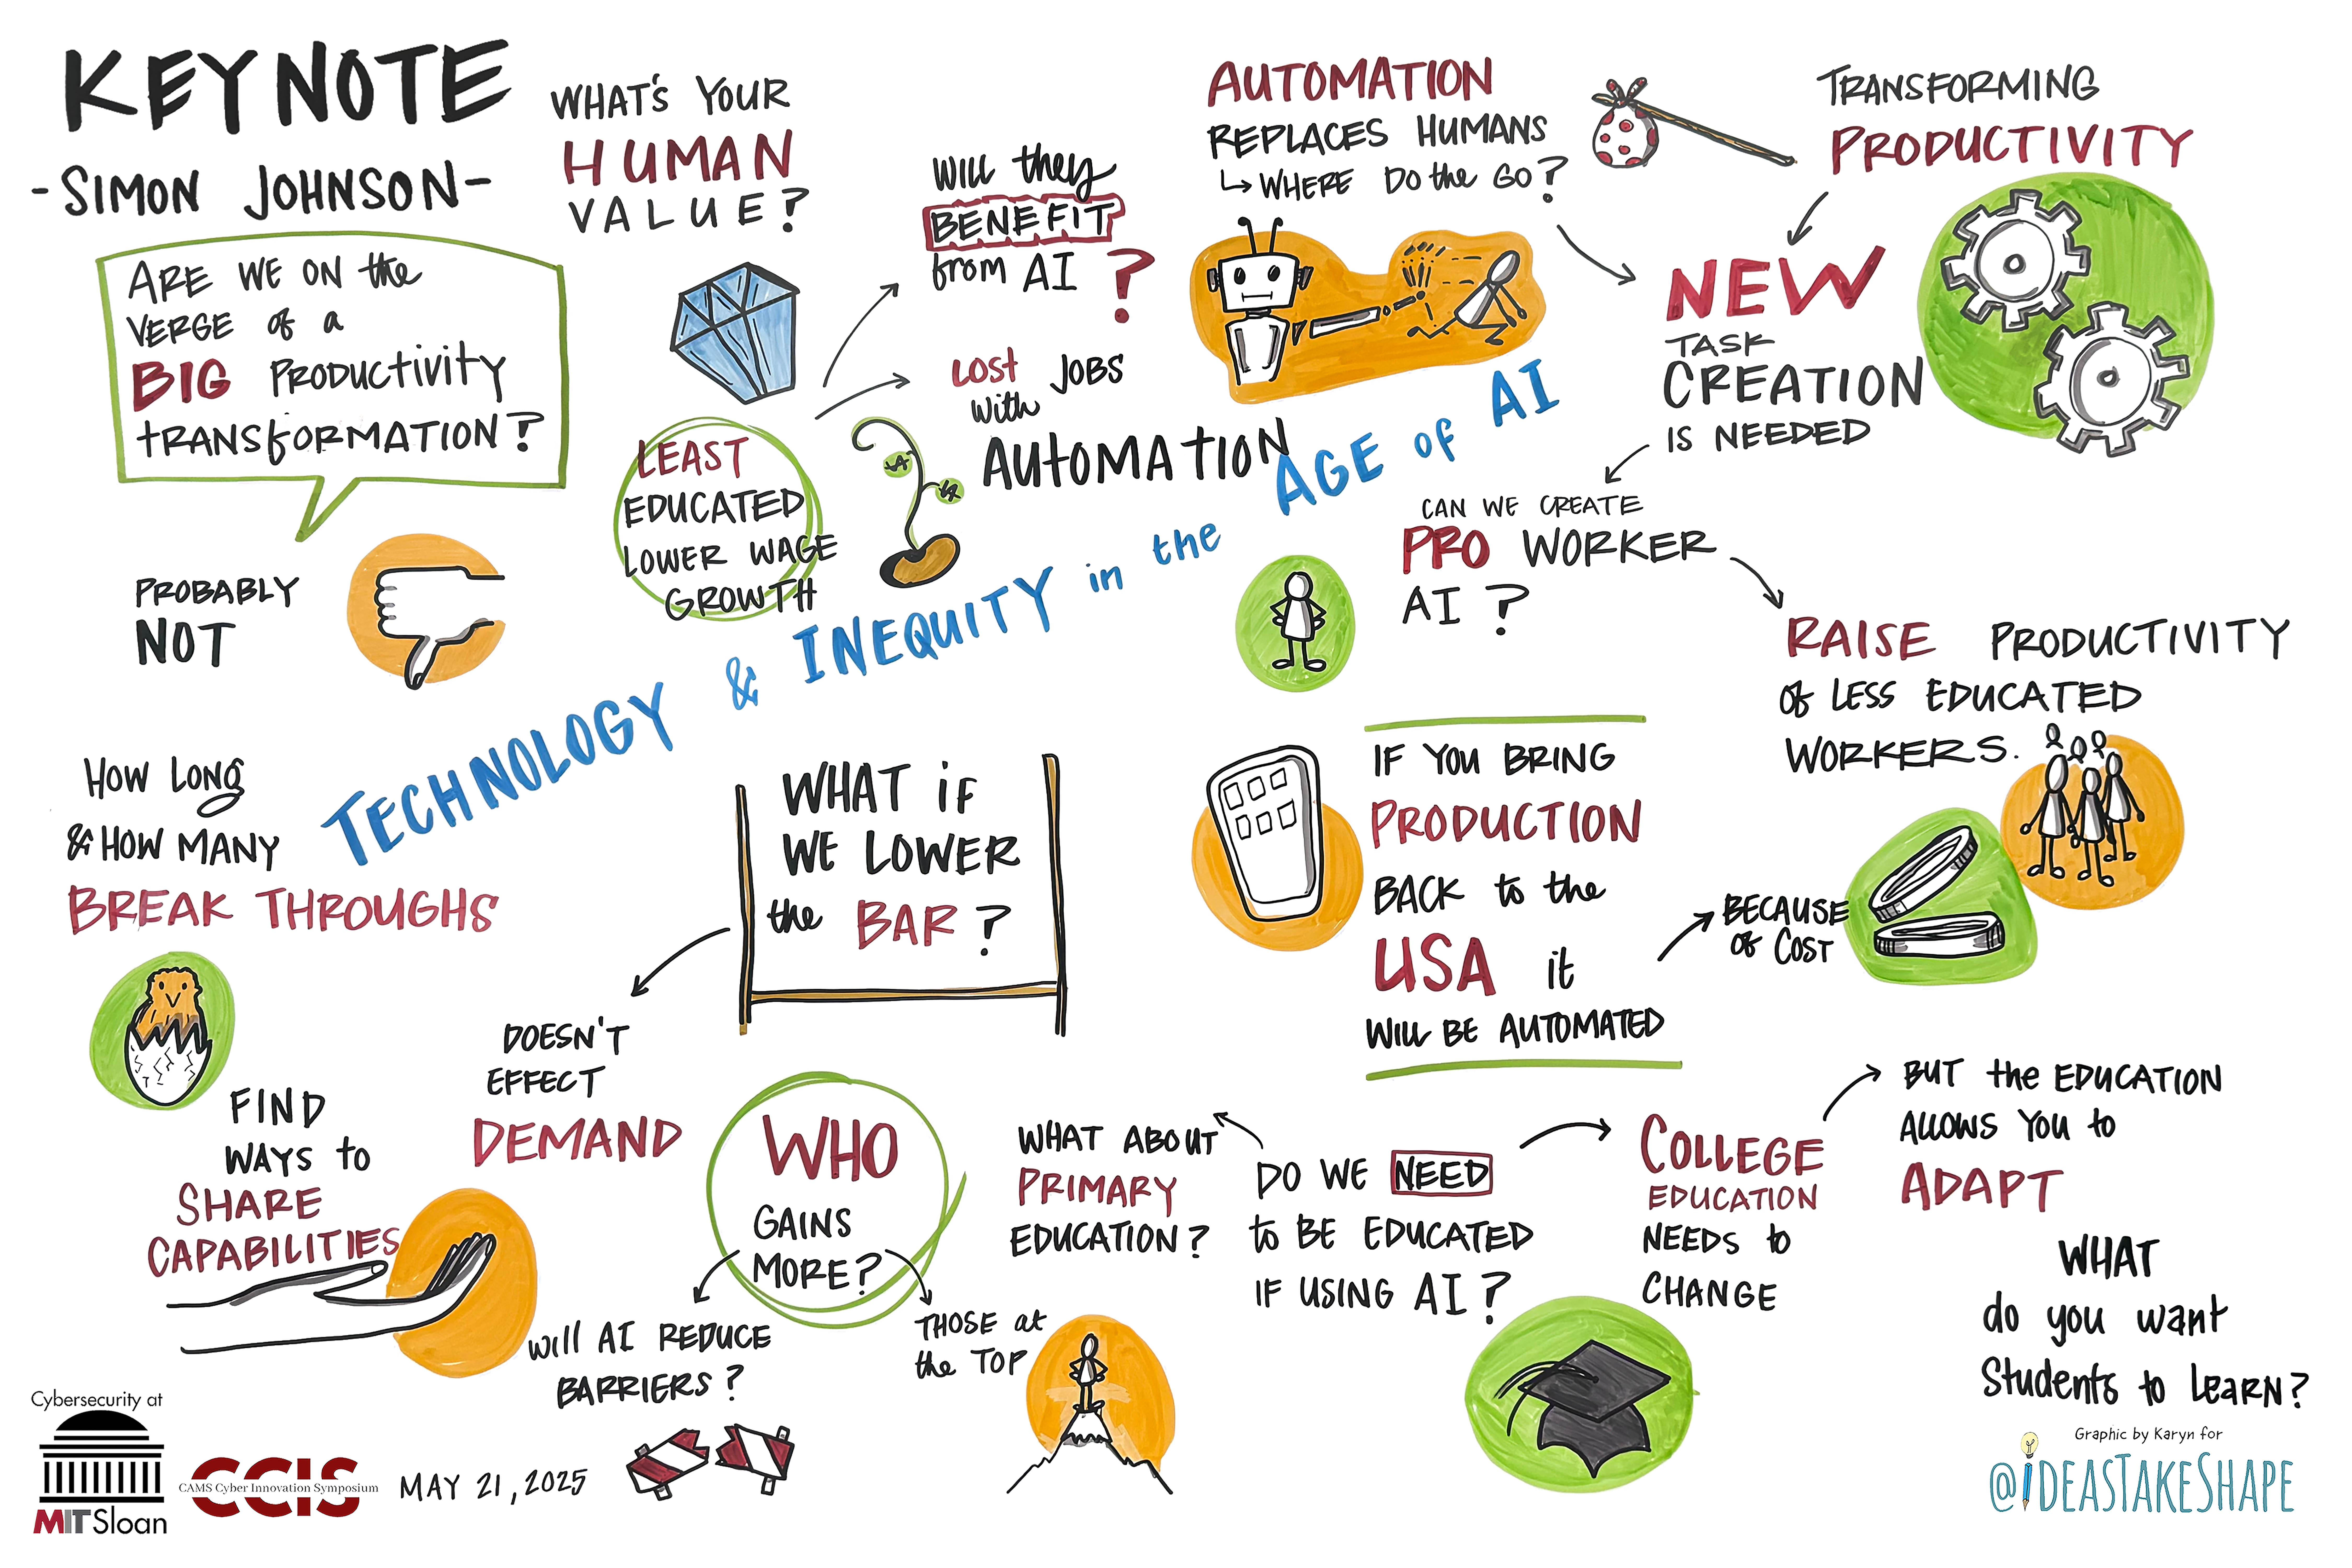 KEYNOTE
-SIMON JOHNSON-
ARE WE ON the
VERGE of a
BIG PRODUCTIVITY
TRANSFORMATION?
PROBABLY
NOT
WHAT'S YOUR
HUMAN
VALUE?
LEAST
EDUCATED
LOWER WAGE
GROWTH
WILL they
BENEFIT
from AI ?
LOST JOBS
with
AUTOMATION
AUTOMATION
REPLACES HUMANS
WHERE DO the GO?
TRANSFORMING
PRODUCTIVITY
NEW
TASK
CREATION
IS NEEDED
CAN WE CREATE
PRO WORKER
AI ?
RAISE PRODUCTIVITY
of LESS EDUCATED
WORKERS.
TECHNOLOGY & INEQUITY in the AGE of AI
HOW LONG
& HOW MANY
BREAK THROUGHS
FIND
WAYS to
SHARE
CAPABILITIES
WHAT iF
WE LOWER
the BAR ?
DOESN'T
EFFECT
DEMAND
WHO
GAINS
MORE?
Will AI REDUCE
BARRIERS?
THOSE at
the TOP
IF YOU BRING
PRODUCTION
BACK to the
USA it
WILL BE AUTOMATED
BECAUSE
of COST
DO WE NEED
to BE EDUCATED
IF USING AI ?
WHAT ABOUT
PRIMARY
EDUCATION?
COLLEGE
EDUCATION
NEEDS to
CHANGE
BUT the EDUCATION
ALLOWS YOU to
ADAPT
WHAT
do you want
Students to LEARN?
Cybersecurity at
MIT Sloan
CCIS
CAMS Cyber Innovation Symposium
MAY 21, 2025
Graphic by Karyn for
@iDEASTAKESHAPE